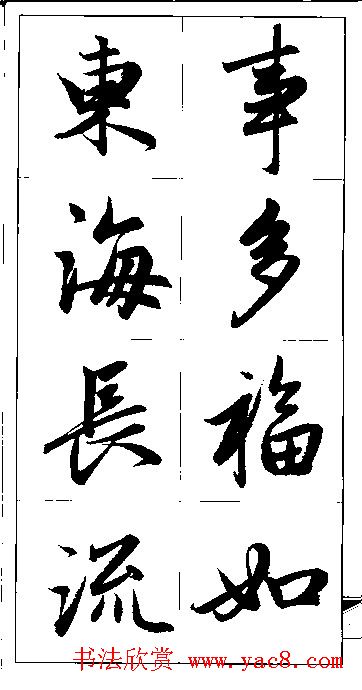 事多福如
東海長流
书法欣赏 www.yac8.com